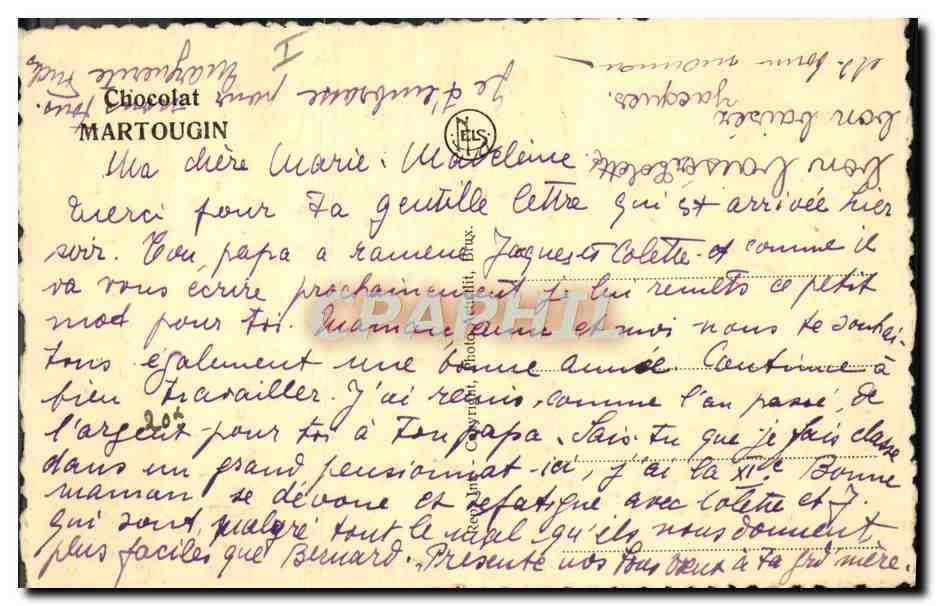 Je t'embrasse pour tous.
Marguerite
I
bon baiser
Jacques.
bon baiser Colette
Chocolat
MARTOUGIN
NELS
Ma chère Marie-Madeleine
merci pour ta gentille lettre qui est arrivée hier
soir. Ton papa a ramené Jacques et Colette et comme il
va vous écrire prochainement je lui remets ce petit
mot pour toi. Maman et moi nous te souhai-
tons également une bonne année. Continue à
bien travailler. J'ai remis, comme l'an passé, de
l'argent pour toi à ton papa. Sais-tu que je fais classe
20
dans un grand pensionnat ici, j'ai la XIe. Bonne
maman se dévoue et se fatigue avec Colette et J.
qui sont, malgré tout le mal qu'ils nous donnent,
plus faciles que Bernard. Présente nos bons vœux à ta grd mère.
Repr. Int. - Copyright, Photo Brux.
CPAPHIL